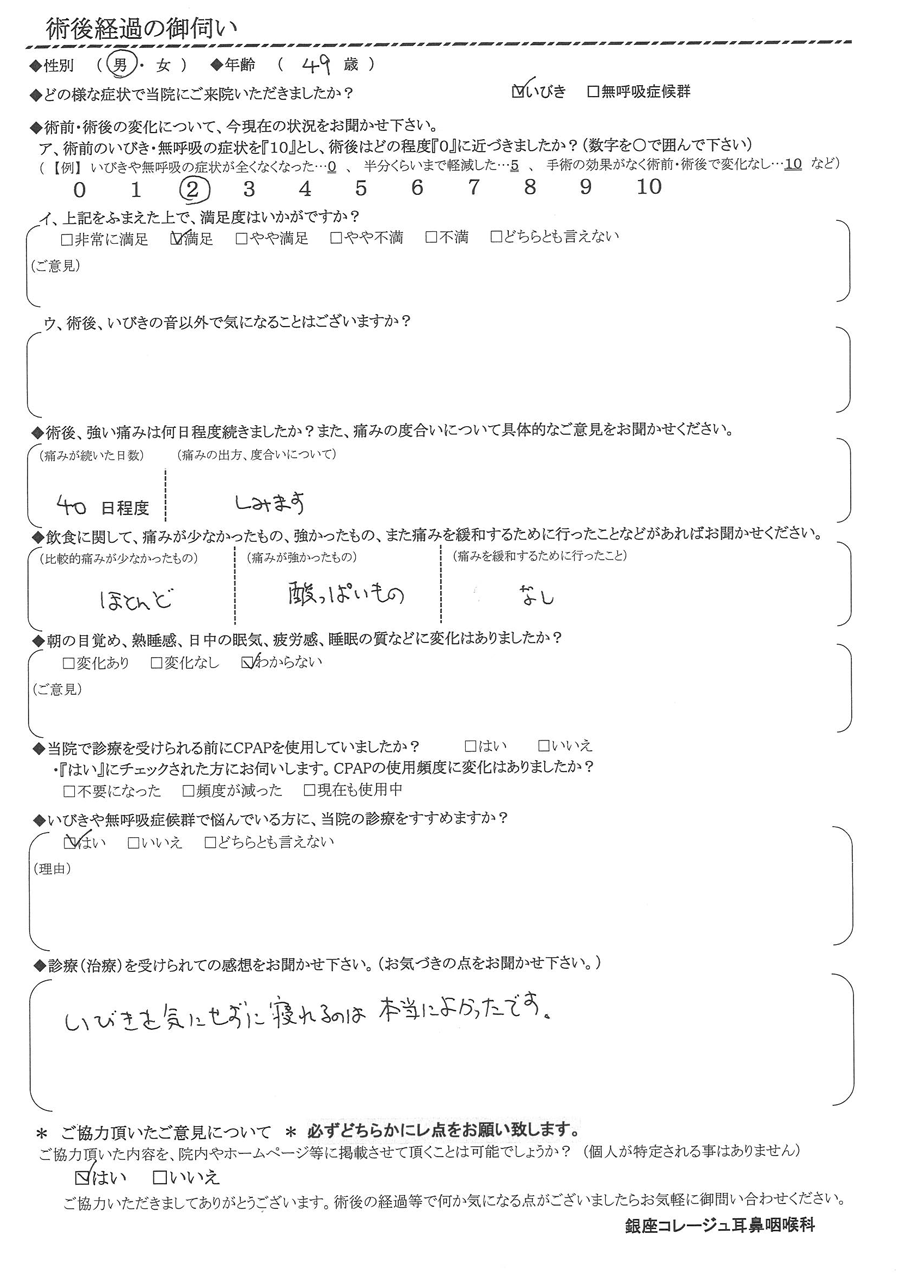 術後経過の御伺い
◆性別 （ 男 ・ 女 ） ◆年齢 （ 49 歳 ）
◆どの様な症状で当院にご来院いただきましたか？ ☑いびき □無呼吸症候群
◆術前・術後の変化について、今現在の状況をお聞かせ下さい。
ア、術前のいびき・無呼吸の症状を『10』とし、術後はどの程度『0』に近づきましたか？（数字を○で囲んで下さい）
（ 【例】 いびきや無呼吸の症状が全くなくなった…0 、 半分くらいまで軽減した…5 、 手術の効果がなく術前・術後で変化なし…10 など）
0 1 2 3 4 5 6 7 8 9 10
イ、上記をふまえた上で、満足度はいかがですか？
□非常に満足 ☑満足 □やや満足 □やや不満 □不満 □どちらとも言えない
（ご意見）
ウ、術後、いびきの音以外で気になることはございますか？
◆術後、強い痛みは何日程度続きましたか？また、痛みの度合いについて具体的なご意見をお聞かせください。
（痛みが続いた日数） （痛みの出方、度合いについて）
40 日程度 しみます
◆飲食に関して、痛みが少なかったもの、強かったもの、また痛みを緩和するために行ったことなどがあればお聞かせください。
（比較的痛みが少なかったもの） （痛みが強かったもの） （痛みを緩和するために行ったこと）
ほとんど 酸っぱいもの なし
◆朝の目覚め、熟睡感、日中の眠気、疲労感、睡眠の質などに変化はありましたか？
□変化あり □変化なし ☑わからない
（ご意見）
◆当院で診療を受けられる前にCPAPを使用していましたか？ □はい □いいえ
・『はい』にチェックされた方にお伺いします。CPAPの使用頻度に変化はありましたか？
□不要になった □頻度が減った □現在も使用中
◆いびきや無呼吸症候群で悩んでいる方に、当院の診療をすすめますか？
☑はい □いいえ □どちらとも言えない
（理由）
◆診療（治療）を受けられての感想をお聞かせ下さい。（お気づきの点をお聞かせ下さい。）
いびきを気にせずに寝れるのは 本当によかったです。
＊ ご協力頂いたご意見について ＊ 必ずどちらかにレ点をお願い致します。
ご協力頂いた内容を、院内やホームページ等に掲載させて頂くことは可能でしょうか？ （個人が特定される事はありません）
☑はい □いいえ
ご協力いただきましてありがとうございます。術後の経過等で何か気になる点がございましたらお気軽に御問い合わせください。
銀座コレージュ耳鼻咽喉科